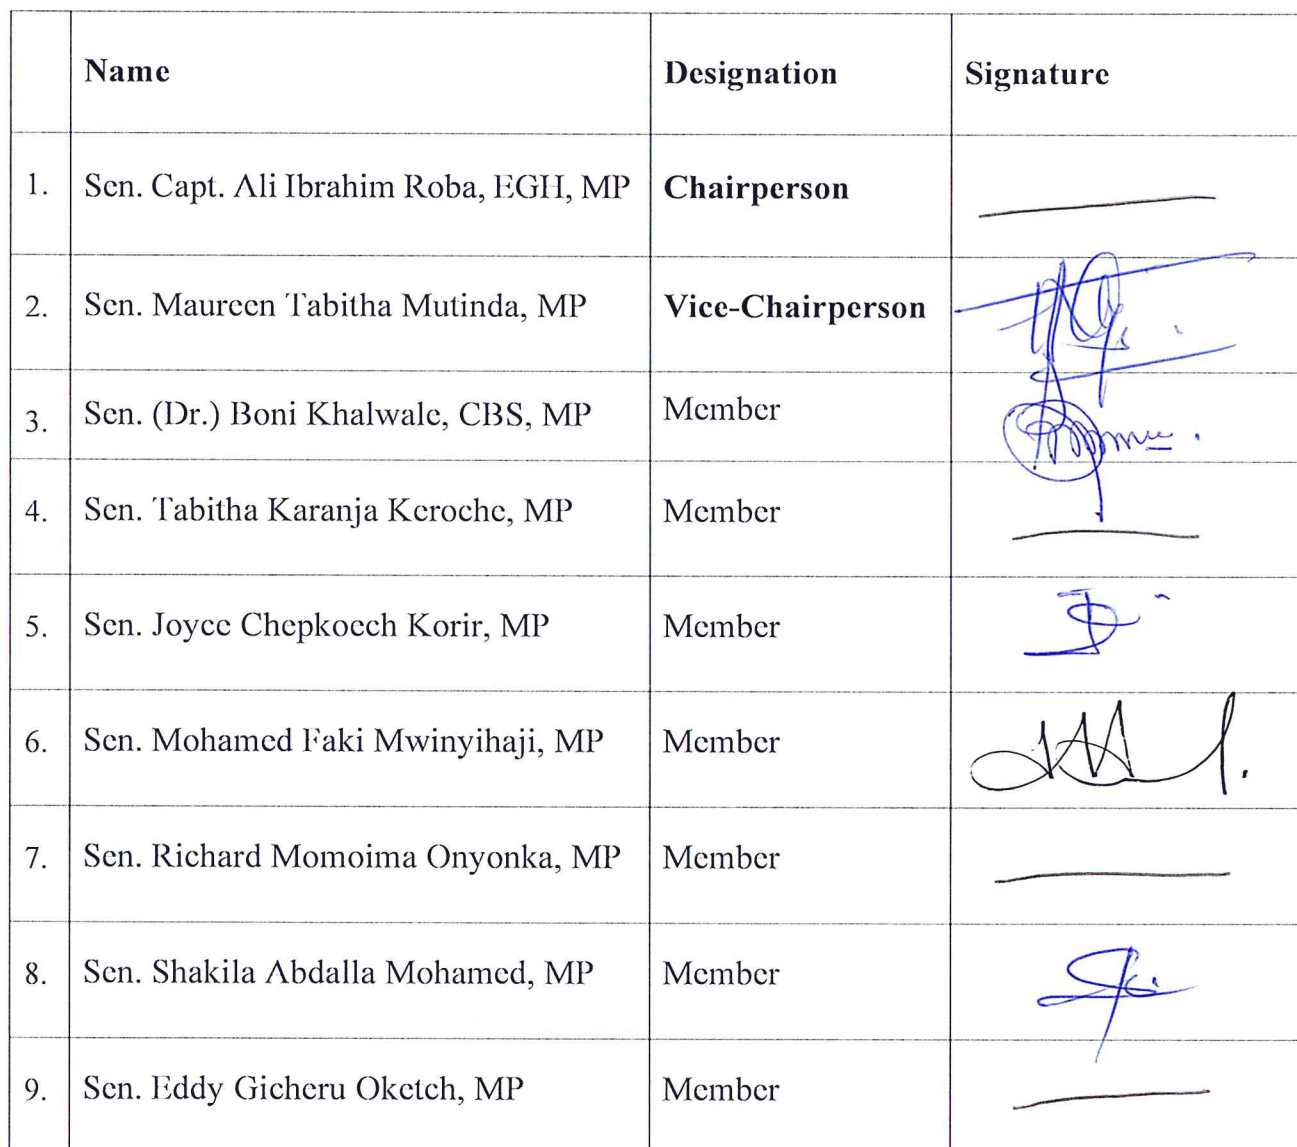 Name Designation Signature
1. Sen. Capt. Ali Ibrahim Roba, EGH, MP Chairperson
2. Sen. Maureen Tabitha Mutinda, MP Vice-Chairperson
3. Sen. (Dr.) Boni Khalwale, CBS, MP Member
4. Sen. Tabitha Karanja Keroche, MP Member
5. Sen. Joyce Chepkoech Korir, MP Member
6. Sen. Mohamed Faki Mwinyihaji, MP Member
7. Sen. Richard Momoima Onyonka, MP Member
8. Sen. Shakila Abdalla Mohamed, MP Member
9. Sen. Eddy Gicheru Oketch, MP Member